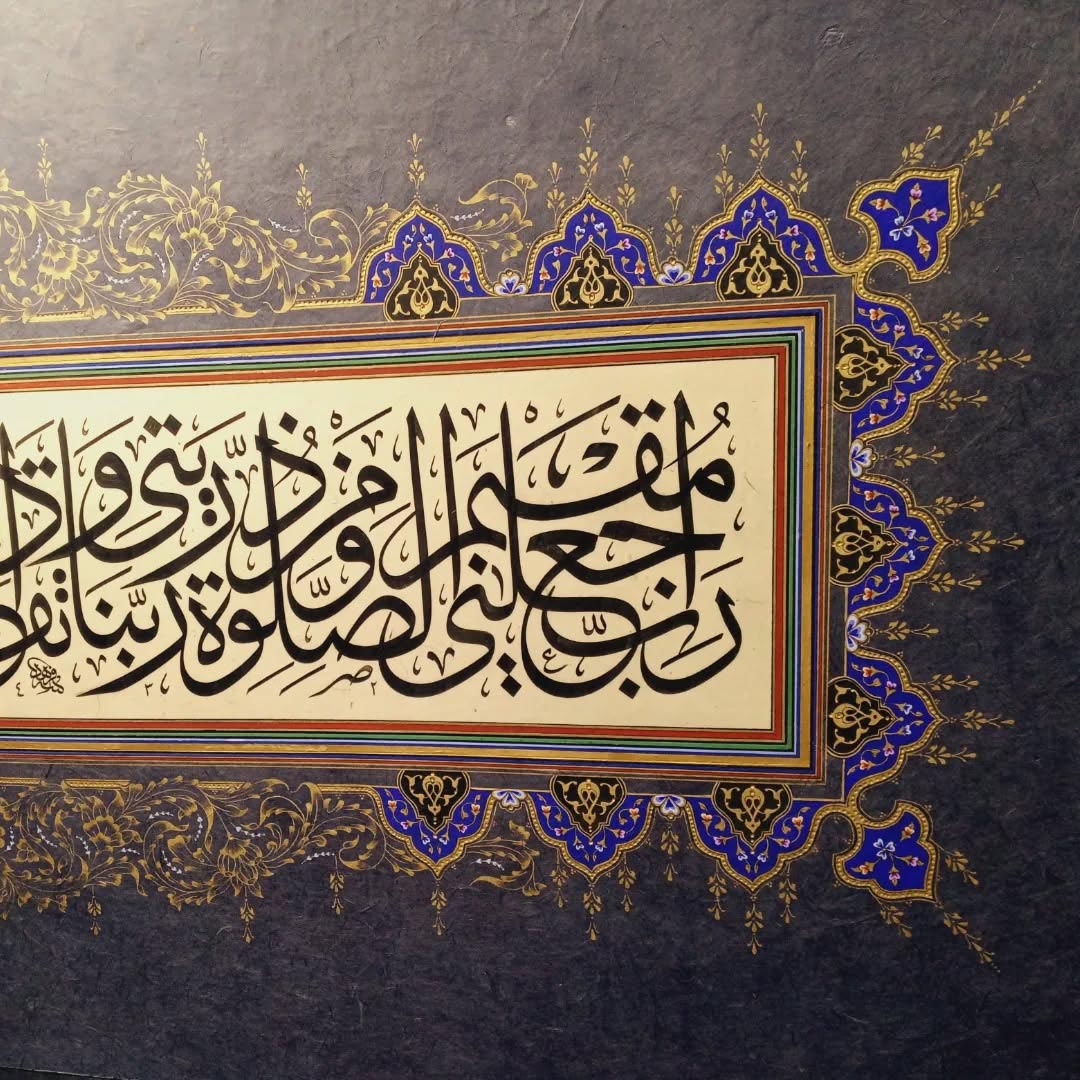 رَبِّ اجْعَلْنى مُقيمَ الصَّلوةِ وَمِنْ ذُرِّيَتى رَبَّنا وَ